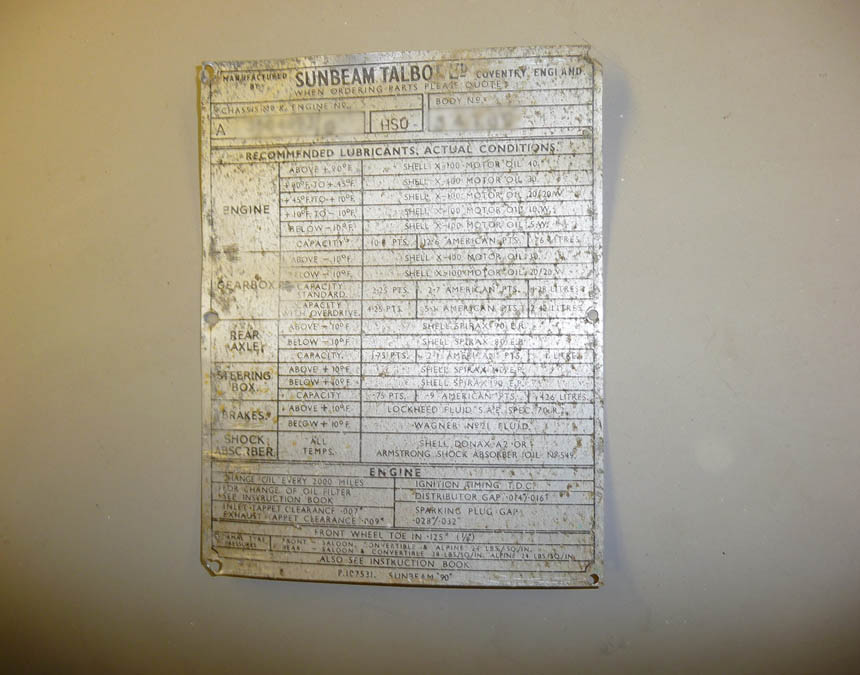 MANUFACTURED BY SUNBEAM TALBO LTD COVENTRY, ENGLAND
WHEN ORDERING PARTS PLEASE QUOTE:
CHASSIS NO & ENGINE NO. BODY NO.
A HSO
RECOMMENDED LUBRICANTS, ACTUAL CONDITIONS.
ENGINE
ABOVE + 90°F. SHELL X-100 MOTOR OIL 40.
+90°F. TO + 45°F. SHELL X-100 MOTOR OIL 30.
+45°F. TO + 10°F. SHELL X-100 MOTOR OIL 20/20 W.
+10°F. TO - 10°F. SHELL X-100 MOTOR OIL 10 W.
BELOW - 10°F. SHELL X-100 MOTOR OIL 5 W.
CAPACITY PTS. 12·6 AMERICAN PTS. LITRES
GEARBOX
ABOVE - 10°F. SHELL X-100 MOTOR OIL 30.
BELOW - 10°F. SHELL X-100 MOTOR OIL 20/20 W.
CAPACITY STANDARD. 2·25 PTS. 2·7 AMERICAN PTS. 1·28 LITRES
CAPACITY WITH OVERDRIVE. 4·25 PTS. AMERICAN PTS. LITRES
REAR AXLE
ABOVE - 10°F. SHELL SPIRAX 90 E.P.
BELOW - 10°F. SHELL SPIRAX 80 E.P.
CAPACITY. 1·75 PTS. 2·1 AMERICAN PTS. LITRES
STEERING BOX
ABOVE + 10°F. SHELL SPIRAX 140 E.P.
BELOW + 10°F. SHELL SPIRAX 90 E.P.
CAPACITY ·75 PTS. ·9 AMERICAN PTS. ·426 LITRES.
BRAKES.
ABOVE + 10°F. LOCKHEED FLUID S.A.E. SPEC. 70 R.
BELOW + 10°F. WAGNER No 21 FLUID.
SHOCK ABSORBER ALL TEMPS. SHELL DONAX A2 OR
ARMSTRONG SHOCK ABSORBER OIL No 549.
ENGINE
CHANGE OIL EVERY 2000 MILES
FOR CHANGE OF OIL FILTER
SEE INSTRUCTION BOOK
INLET TAPPET CLEARANCE ·007"
EXHAUST TAPPET CLEARANCE ·009"
IGNITION TIMING T.D.C.
DISTRIBUTOR GAP ·014"/·016"
SPARKING PLUG GAP
·028"/·032"
FRONT WHEEL TOE IN ·125" (1/8")
NORMAL TYRE PRESSURES
FRONT - SALOON, CONVERTIBLE & ALPINE 24 LBS/SQ/IN.
REAR - SALOON & CONVERTIBLE LBS/SQ/IN. ALPINE LBS/SQ/IN.
ALSO SEE INSTRUCTION BOOK
P.107531. SUNBEAM "90"